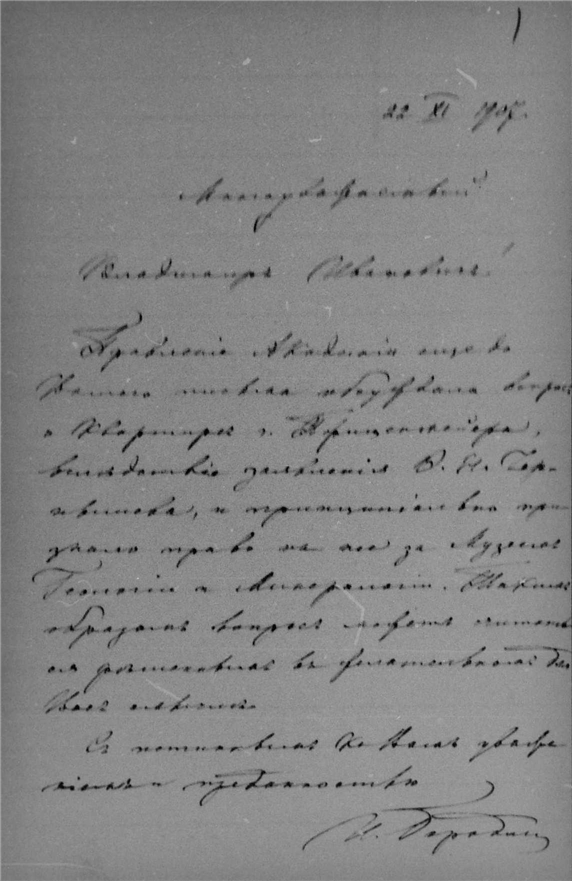 22 XI 1907.
Милостивый
Владимиръ Ивановичъ!
Правленіе Академіи еще до
Вашего письма обсуждало вопросъ
о квартирѣ г.
вслѣдствіе заявленія Ѳ. Н. Чер-
нышева, и принципіально при-
знало право на нее за Музеемъ
Геологіи и Минералогіи. Такимъ
образомъ вопросъ можетъ считать-
ся рѣшеннымъ въ желательномъ для
Васъ смыслѣ.
Съ истиннымъ къ Вамъ уваже-
ніемъ и преданностью
И. Бородин